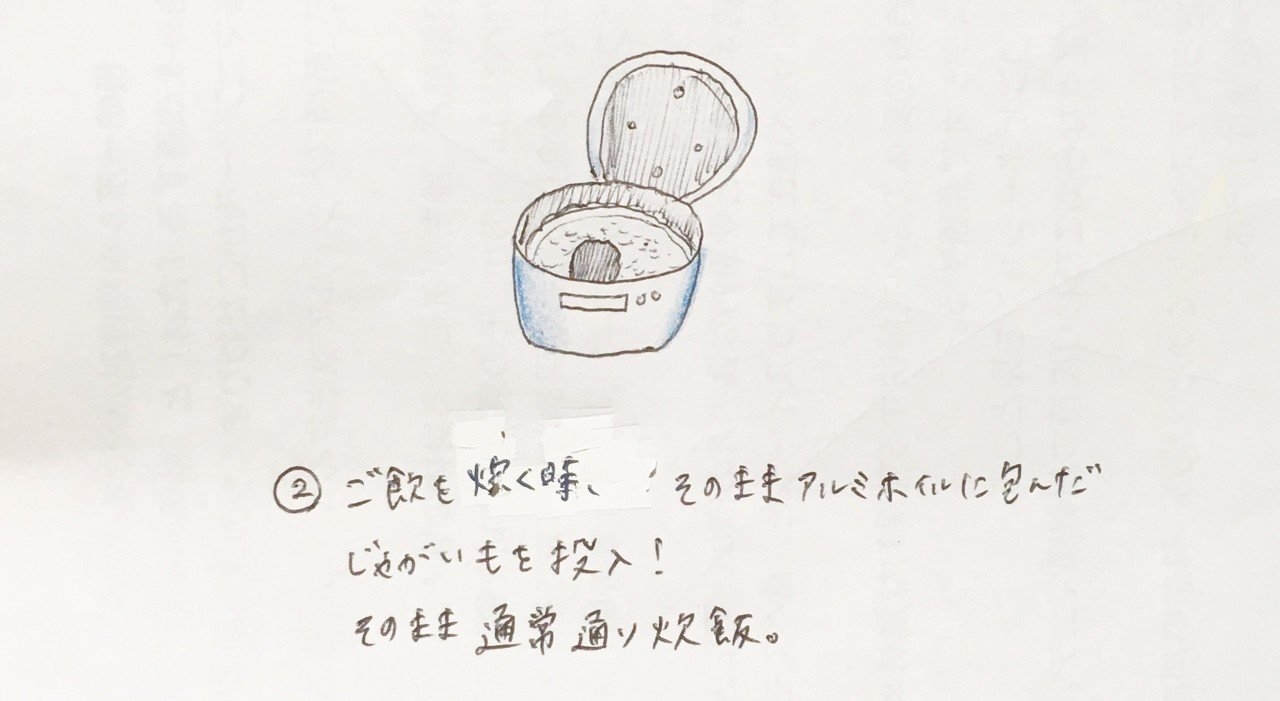 ② ご飯を炊く時、そのままアルミホイルに包んだ
じゃがいもを投入！
そのまま通常通り炊飯。